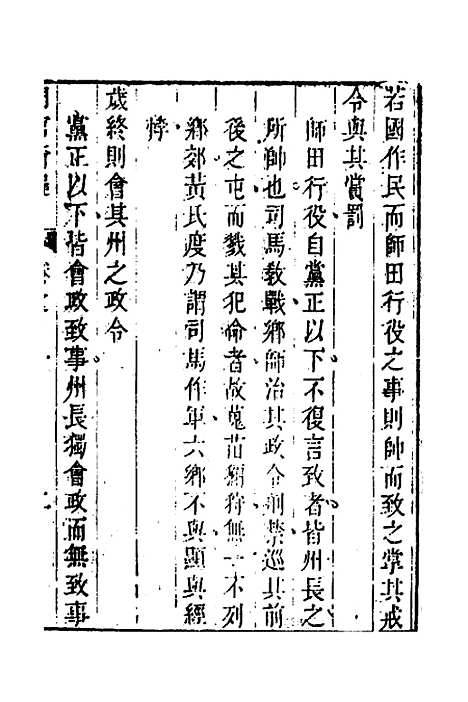 若國作民而師田行役之事則帥而致之掌其戒
令與其賞罰
師田行役自黨正以下不復言致者皆州長之
所帥也司馬教戰鄉師治其政令刑禁巡其前
後之屯而戮其犯命者故蒐苗獮狩無一不列
鄉郊黃氏度乃謂司馬作軍六鄉不與顯與經
悖
歲終則會其州之政令
黨正以下皆會政致事州長獨會政而無致事